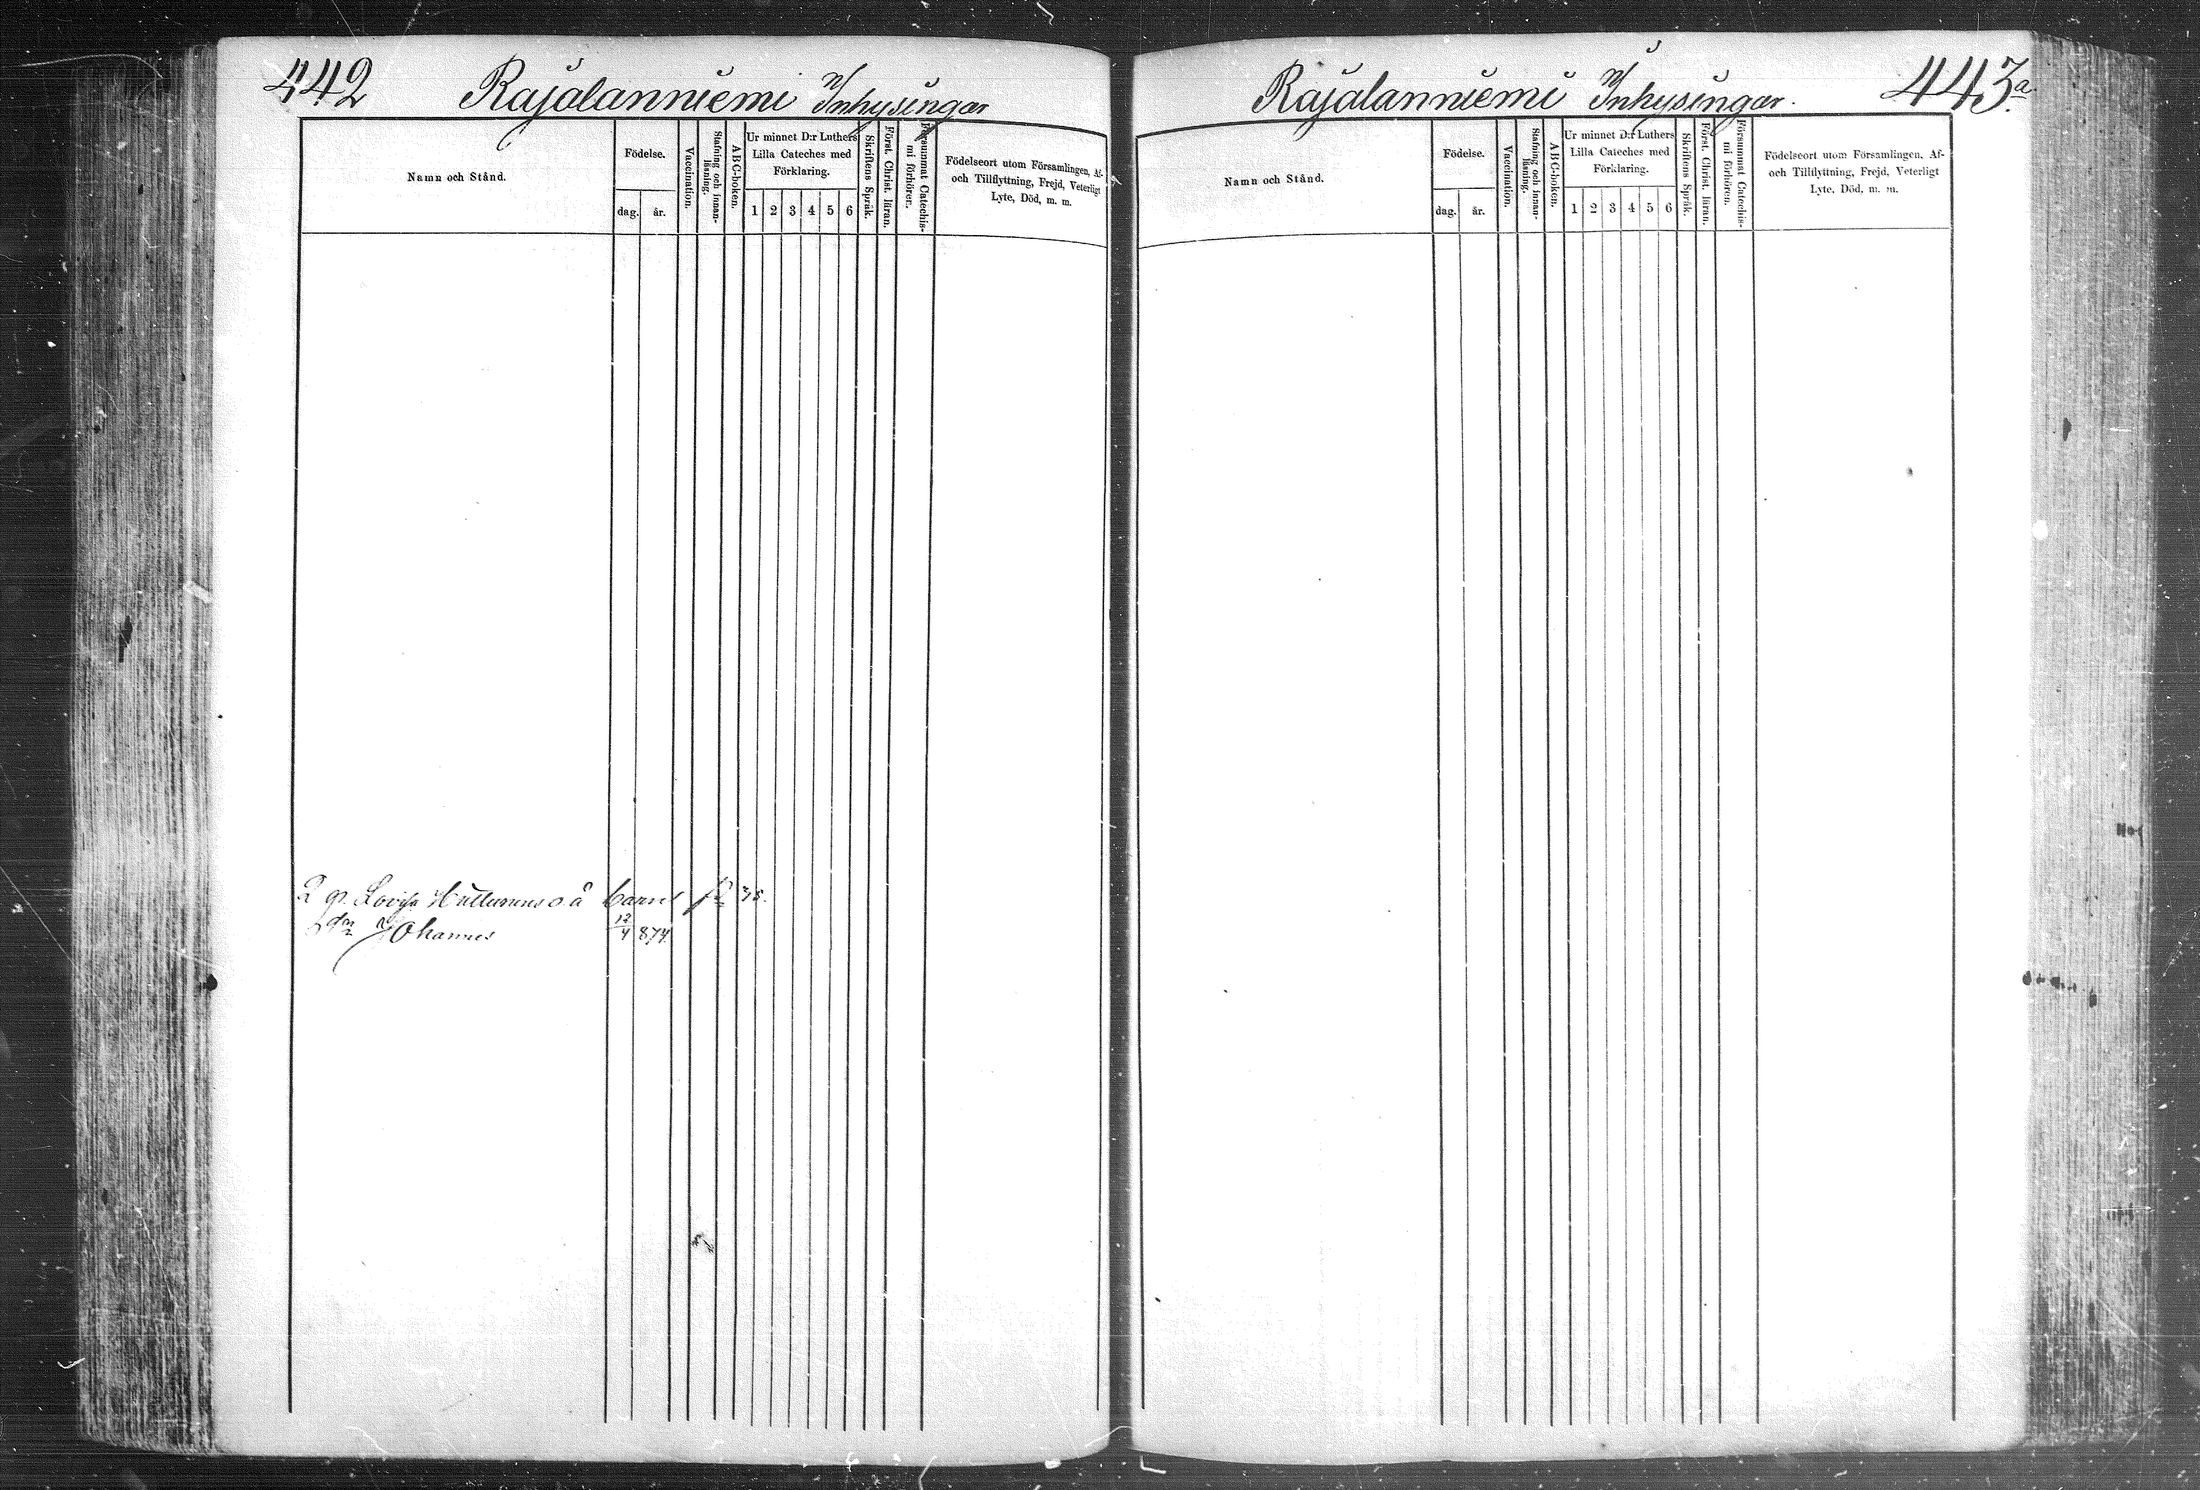 442 Rajalanniemi Inhysingar
Namn och Stånd.
Födelse.
dag. år.
Vaccination.
Stafning och innan-
läsning.
ABC-boken.
Ur minnet D:r Luthers
Lilla Cateches med
Förklaring.
1 2 3 4 5 6
Skriftens Språk.
Först. Christ. läran.
Försummat Catechis-
mi förhören.
Födelseort utom Församlingen, Af-
och Tillflyttning, Frejd, Veterligt
Lyte, Död, m. m.
Lovisa o. ä barn
Johannes 12/4 874
Rajalanniemi Inhysingar. 443a
Namn och Stånd.
Födelse.
dag. år.
Vaccination.
Stafning och innan-
läsning.
ABC-boken.
Ur minnet D:r Luthers
Lilla Cateches med
Förklaring.
1 2 3 4 5 6
Skriftens Språk.
Först. Christ. läran.
Försummat Catechis-
mi förhören.
Födelseort utom Församlingen, Af-
och Tillflyttning, Frejd, Veterligt
Lyte, Död, m. m.